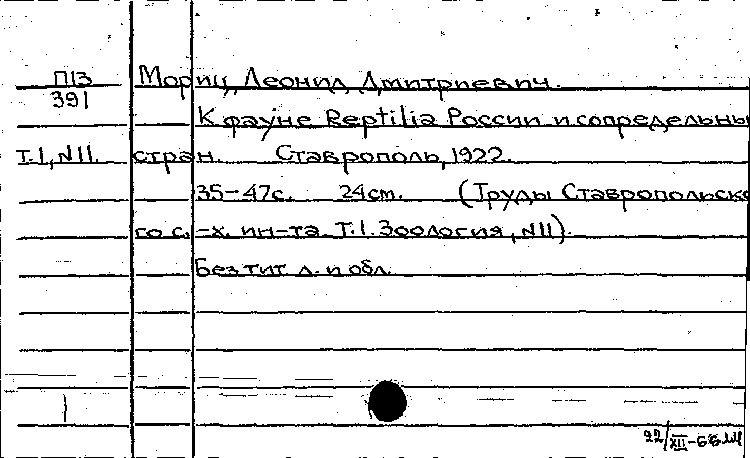 П13
391
Мориц, Леонид Дмитриевич.
К фауне Reptilia России и сопредельны
Т.1, №11. стран. Ставрополь, 1922.
35-47с. 24см. (Труды Ставропольско
го с.-х. ин-та. Т.1. Зоология, №11).
Без тит. л. и обл.